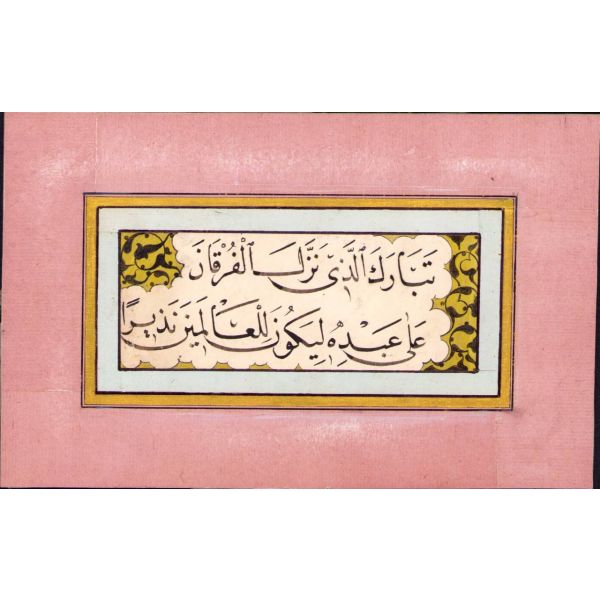 تَبَارَكَ الَّذِي نَزَّلَ الْفُرْقَانَ
عَلَى عَبْدِهِ لِيَكُونَ لِلْعَالَمِينَ نَذِيرًا